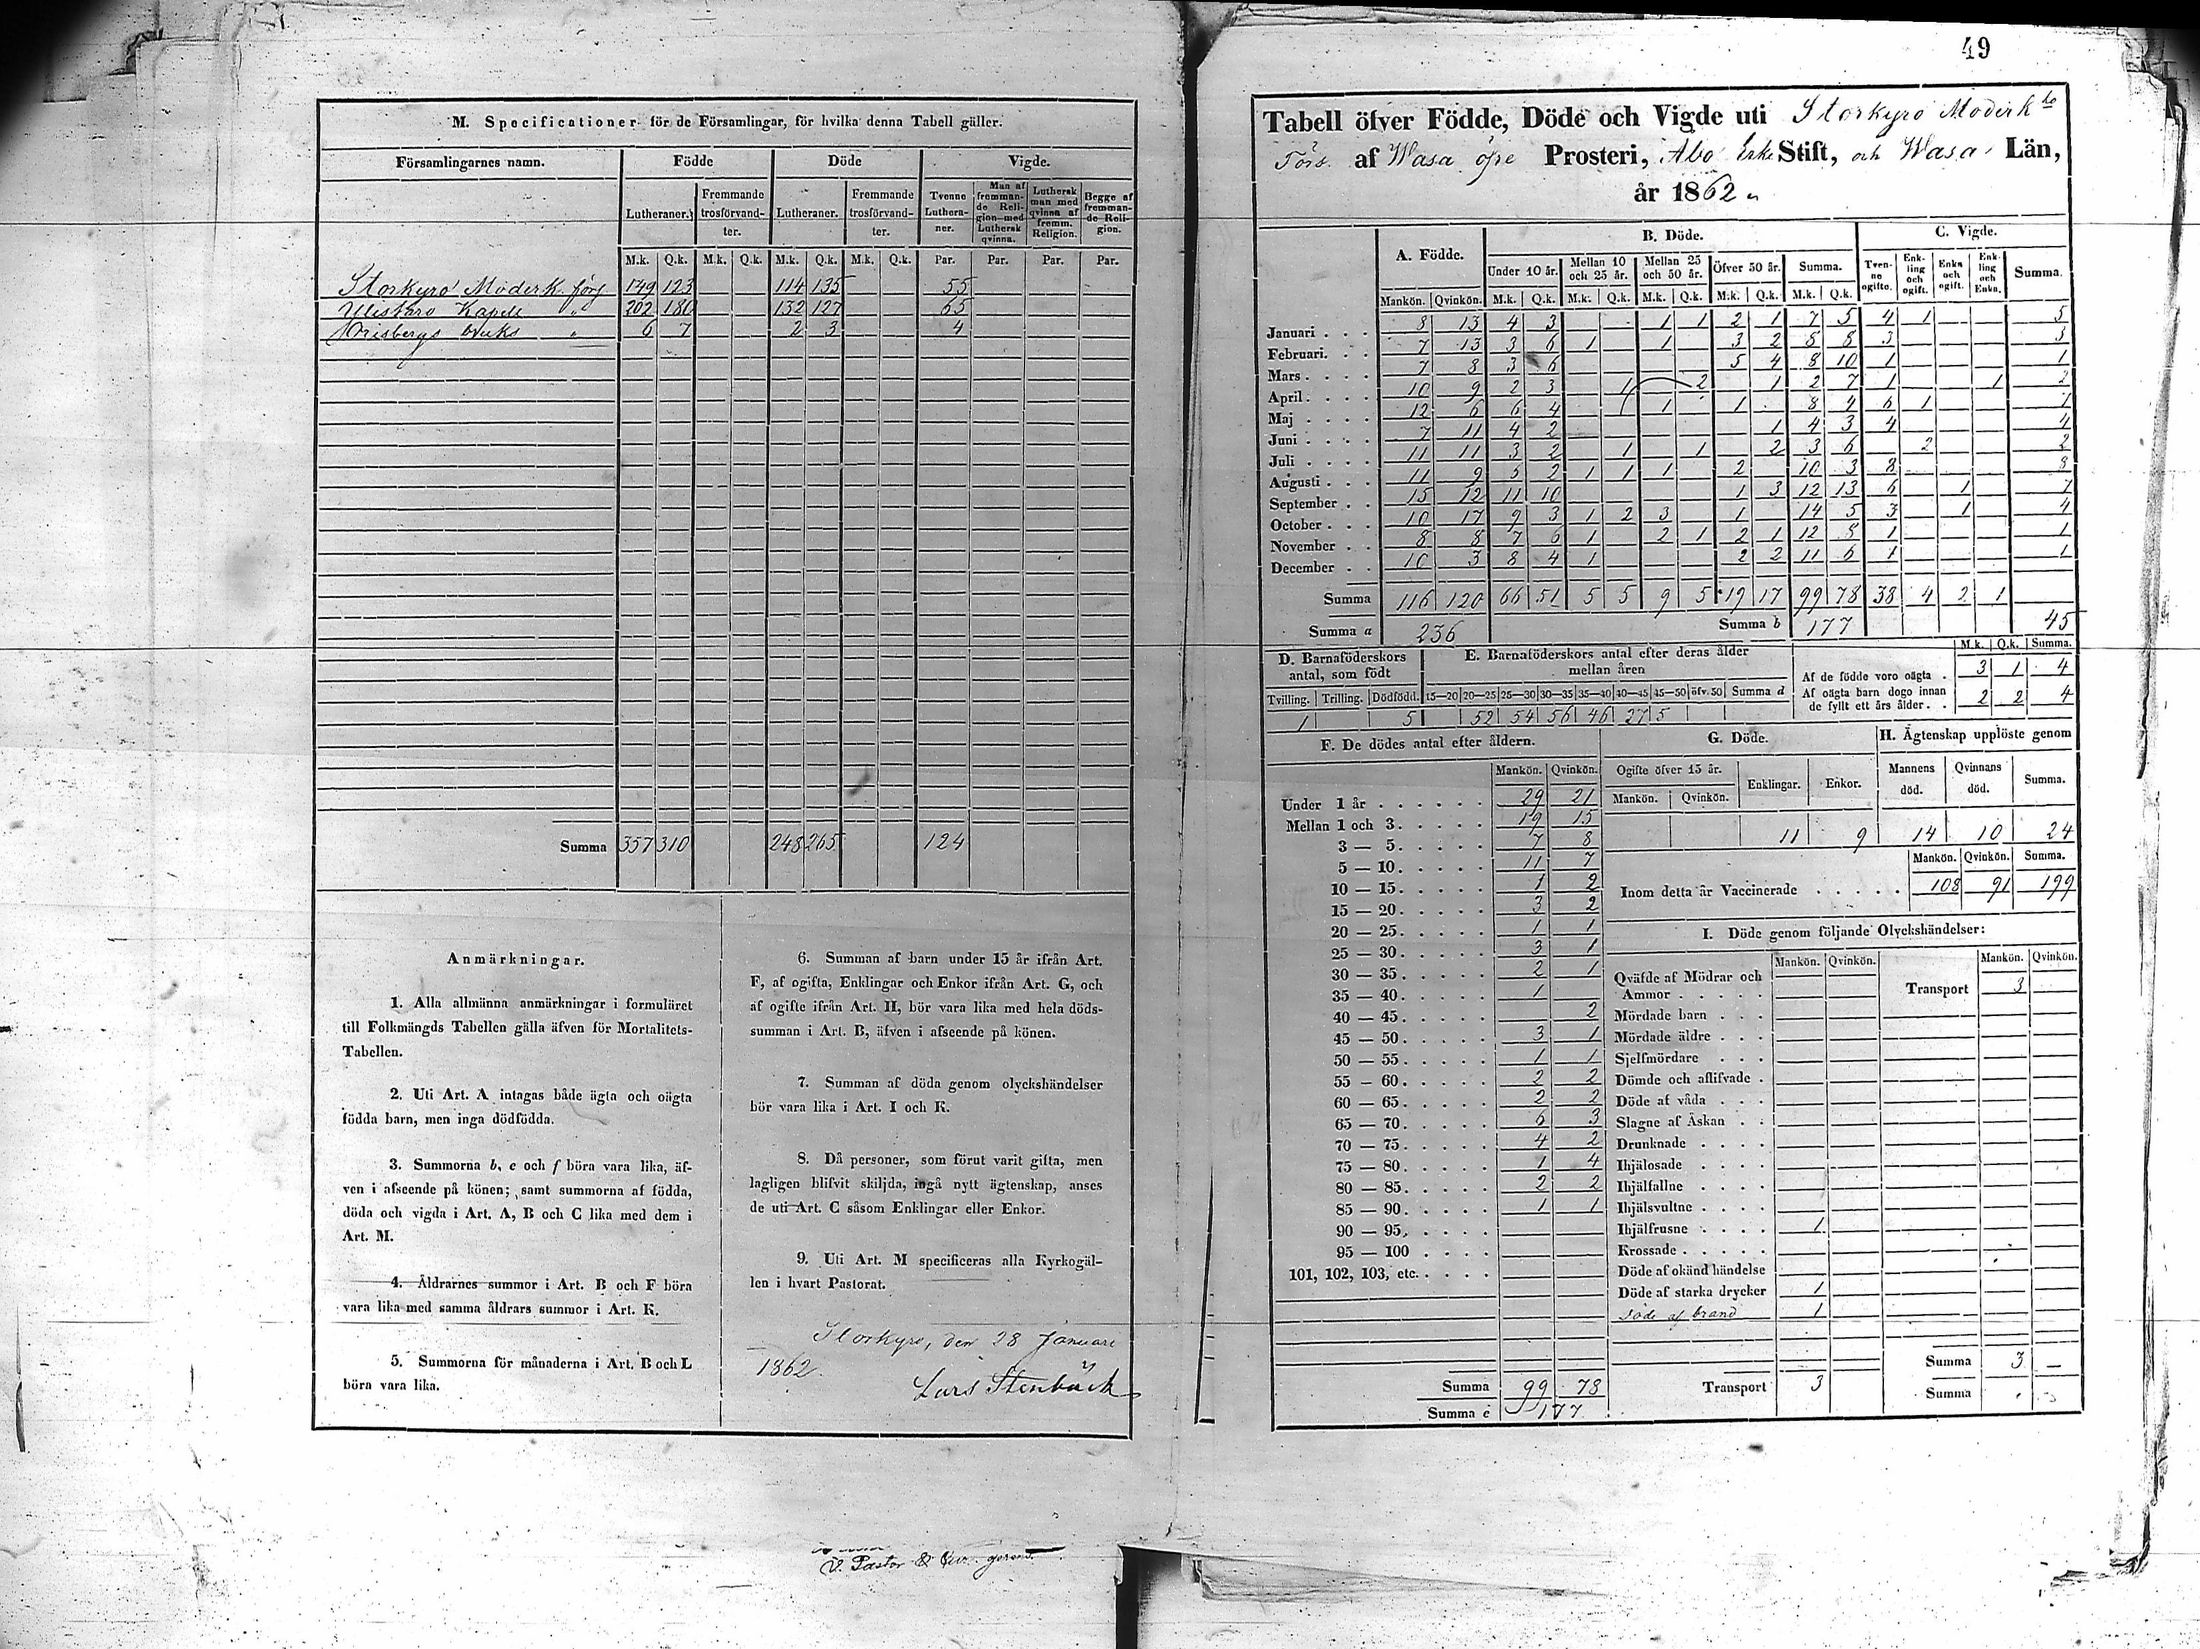 M. Specificationer för de Församlingar, för hvilka denna Tabell gäller.
Församlingarnes namn. Födde Döde Vigde.
Lutheraner. Fremmande trosförvandter. Lutheraner. Fremmande trosförvandter. Tvenne Lutheraner. Man af fremmande Religion med Luthersk qvinna. Luthersk man med qvinna af fremm. Religion. Begge af fremmande Religion.
M.k. Q.k. M.k. Q.k. M.k. Q.k. M.k. Q.k. Par. Par. Par. Par.
Storkyro Moderk. förs 149 123 114 135 55
Ylistaro Kapell " 202 180 132 127 65
Orisbergs Bruks " 6 7 2 3 4
Summa 357 310 248 265 124
Anmärkningar.
1. Alla allmänna anmärkningar i formuläret
till Folkmängds Tabellen gälla äfven för Mortalitets-
Tabellen.
2. Uti Art. A intagas både ägta och oägta
födda barn, men inga dödfödda.
3. Summorna b, c och f böra vara lika, äf-
ven i afseende på könen; samt summorna af födda,
döda och vigda i Art. A, B och C lika med dem i
Art. M.
4. Åldrarnes summor i Art. B och F böra
vara lika med samma åldrars summor i Art. K.
5. Summorna för månaderna i Art. B och L
böra vara lika.
6. Summan af barn under 15 år ifrån Art.
F, af ogifta, Enklingar och Enkor ifrån Art. G, och
af ogifte ifrån Art. H, bör vara lika med hela döds-
summan i Art. B, äfven i afseende på könen.
7. Summan af döda genom olyckshändelser
bör vara lika i Art. I och K.
8. Då personer, som förut varit gifta, men
lagligen blifvit skiljda, ingå nytt ägtenskap, anses
de uti Art. C såsom Enklingar eller Enkor.
9. Uti Art. M specificeras alla Kyrkogäl-
len i hvart Pastorat.
Storkyro, den 28 Januari
1862.
Lars Stenbäck
V. Pastor
49
Tabell öfver Födde, Döde och Vigde uti Storkyro Moderk
Förs. af Wasa öfre Prosteri, Åbo Erke Stift, och Wasa Län,
år 1862
A. Födde. B. Döde. C. Vigde.
Under 10 år. Mellan 10 och 25 år. Mellan 25 och 50 år. Öfver 50 år. Summa. Tvenne ogifte. Enkling och ogift. Enka och ogift. Enkling och Enka. Summa.
Mankön. Qvinkön. M.k. Q.k. M.k. Q.k. M.k. Q.k. M.k. Q.k. M.k. Q.k.
Januari . . . 8 13 4 3 1 1 2 1 7 5 4 1 5
Februari. . . 7 13 3 6 1 1 3 2 8 8 3 3
Mars . . . . 7 8 3 6 5 4 8 10 1 1
April. . . . 10 9 2 3 1 2 1 2 7 1 1 2
Maj . . . . 12 6 6 4 1 1 8 4 6 1 7
Juni . . . . 7 11 4 2 1 4 3 4 4
Juli . . . . 11 11 3 2 1 1 2 3 6 2 2
Augusti . . . 11 9 5 2 1 1 1 2 10 3 8 8
September . . 15 12 11 10 1 3 12 13 6 1 7
October . . . 10 17 9 3 1 2 3 1 14 5 3 1 4
November . . 8 8 7 6 1 2 1 2 1 12 8 1 1
December . . 10 3 8 4 1 2 2 11 6 1 1
Summa 116 120 66 51 5 5 9 5 19 17 99 78 38 4 2 1
Summa a 236 Summa b 177 45
D. Barnaföderskors antal, som födt
Tvilling. Trilling. Dödfödd.
1 5
E. Barnaföderskors antal efter deras ålder mellan åren
15—20 20—25 25—30 30—35 35—40 40—45 45—50 öfv. 50 Summa d
52 54 56 46 27 5
M.k. Q.k. Summa.
Af de födde voro oägta . 3 1 4
Af oägta barn dogo innan
de fyllt ett års ålder . . 2 2 4
F. De dödes antal efter åldern.
Mankön. Qvinkön.
Under 1 år . . . . . . 29 21
Mellan 1 och 3. . . . . 19 15
3 — 5. . . . . 7 8
5 — 10. . . . . 11 7
10 — 15. . . . . 1 2
15 — 20. . . . . 3 2
20 — 25. . . . . 1 1
25 — 30. . . . . 3 1
30 — 35. . . . . 2 1
35 — 40. . . . . 1
40 — 45. . . . . 2
45 — 50. . . . . 3 1
50 — 55. . . . . 1 1
55 — 60. . . . . 2 2
60 — 65. . . . . 2 2
65 — 70. . . . . 6 3
70 — 75. . . . . 4 2
75 — 80. . . . . 1 4
80 — 85. . . . . 2 2
85 — 90. . . . . 1 1
90 — 95. . . . .
95 — 100 . . . .
101, 102, 103, etc. . . . .
Summa 99 78
Summa c 177
G. Döde.
Ogifte öfver 15 år. Enklingar. Enkor.
Mankön. Qvinkön.
11 9
H. Ägtenskap upplöste genom
Mannens död. Qvinnans död. Summa.
14 10 24
Mankön. Qvinkön. Summa.
Inom detta år Vaccinerade . . . . . 108 91 199
I. Döde genom följande Olyckshändelser:
Mankön. Qvinkön. Mankön. Qvinkön.
Qväfde af Mödrar och
Ammor . . . . .
Transport 3
Mördade barn . . .
Mördade äldre . . .
Sjelfmördare . . .
Dömde och aflifvade .
Döde af våda . . .
Slagne af Åskan . .
Drunknade . . . .
Ihjälosade . . . .
Ihjälfallne . . . .
Ihjälsvultne . . . .
Ihjälfrusne . . . . 1
Krossade . . . . .
Döde af okänd händelse
Döde af starka drycker 1
Döde af brand 1
Transport 3
Summa 3 —
Summa